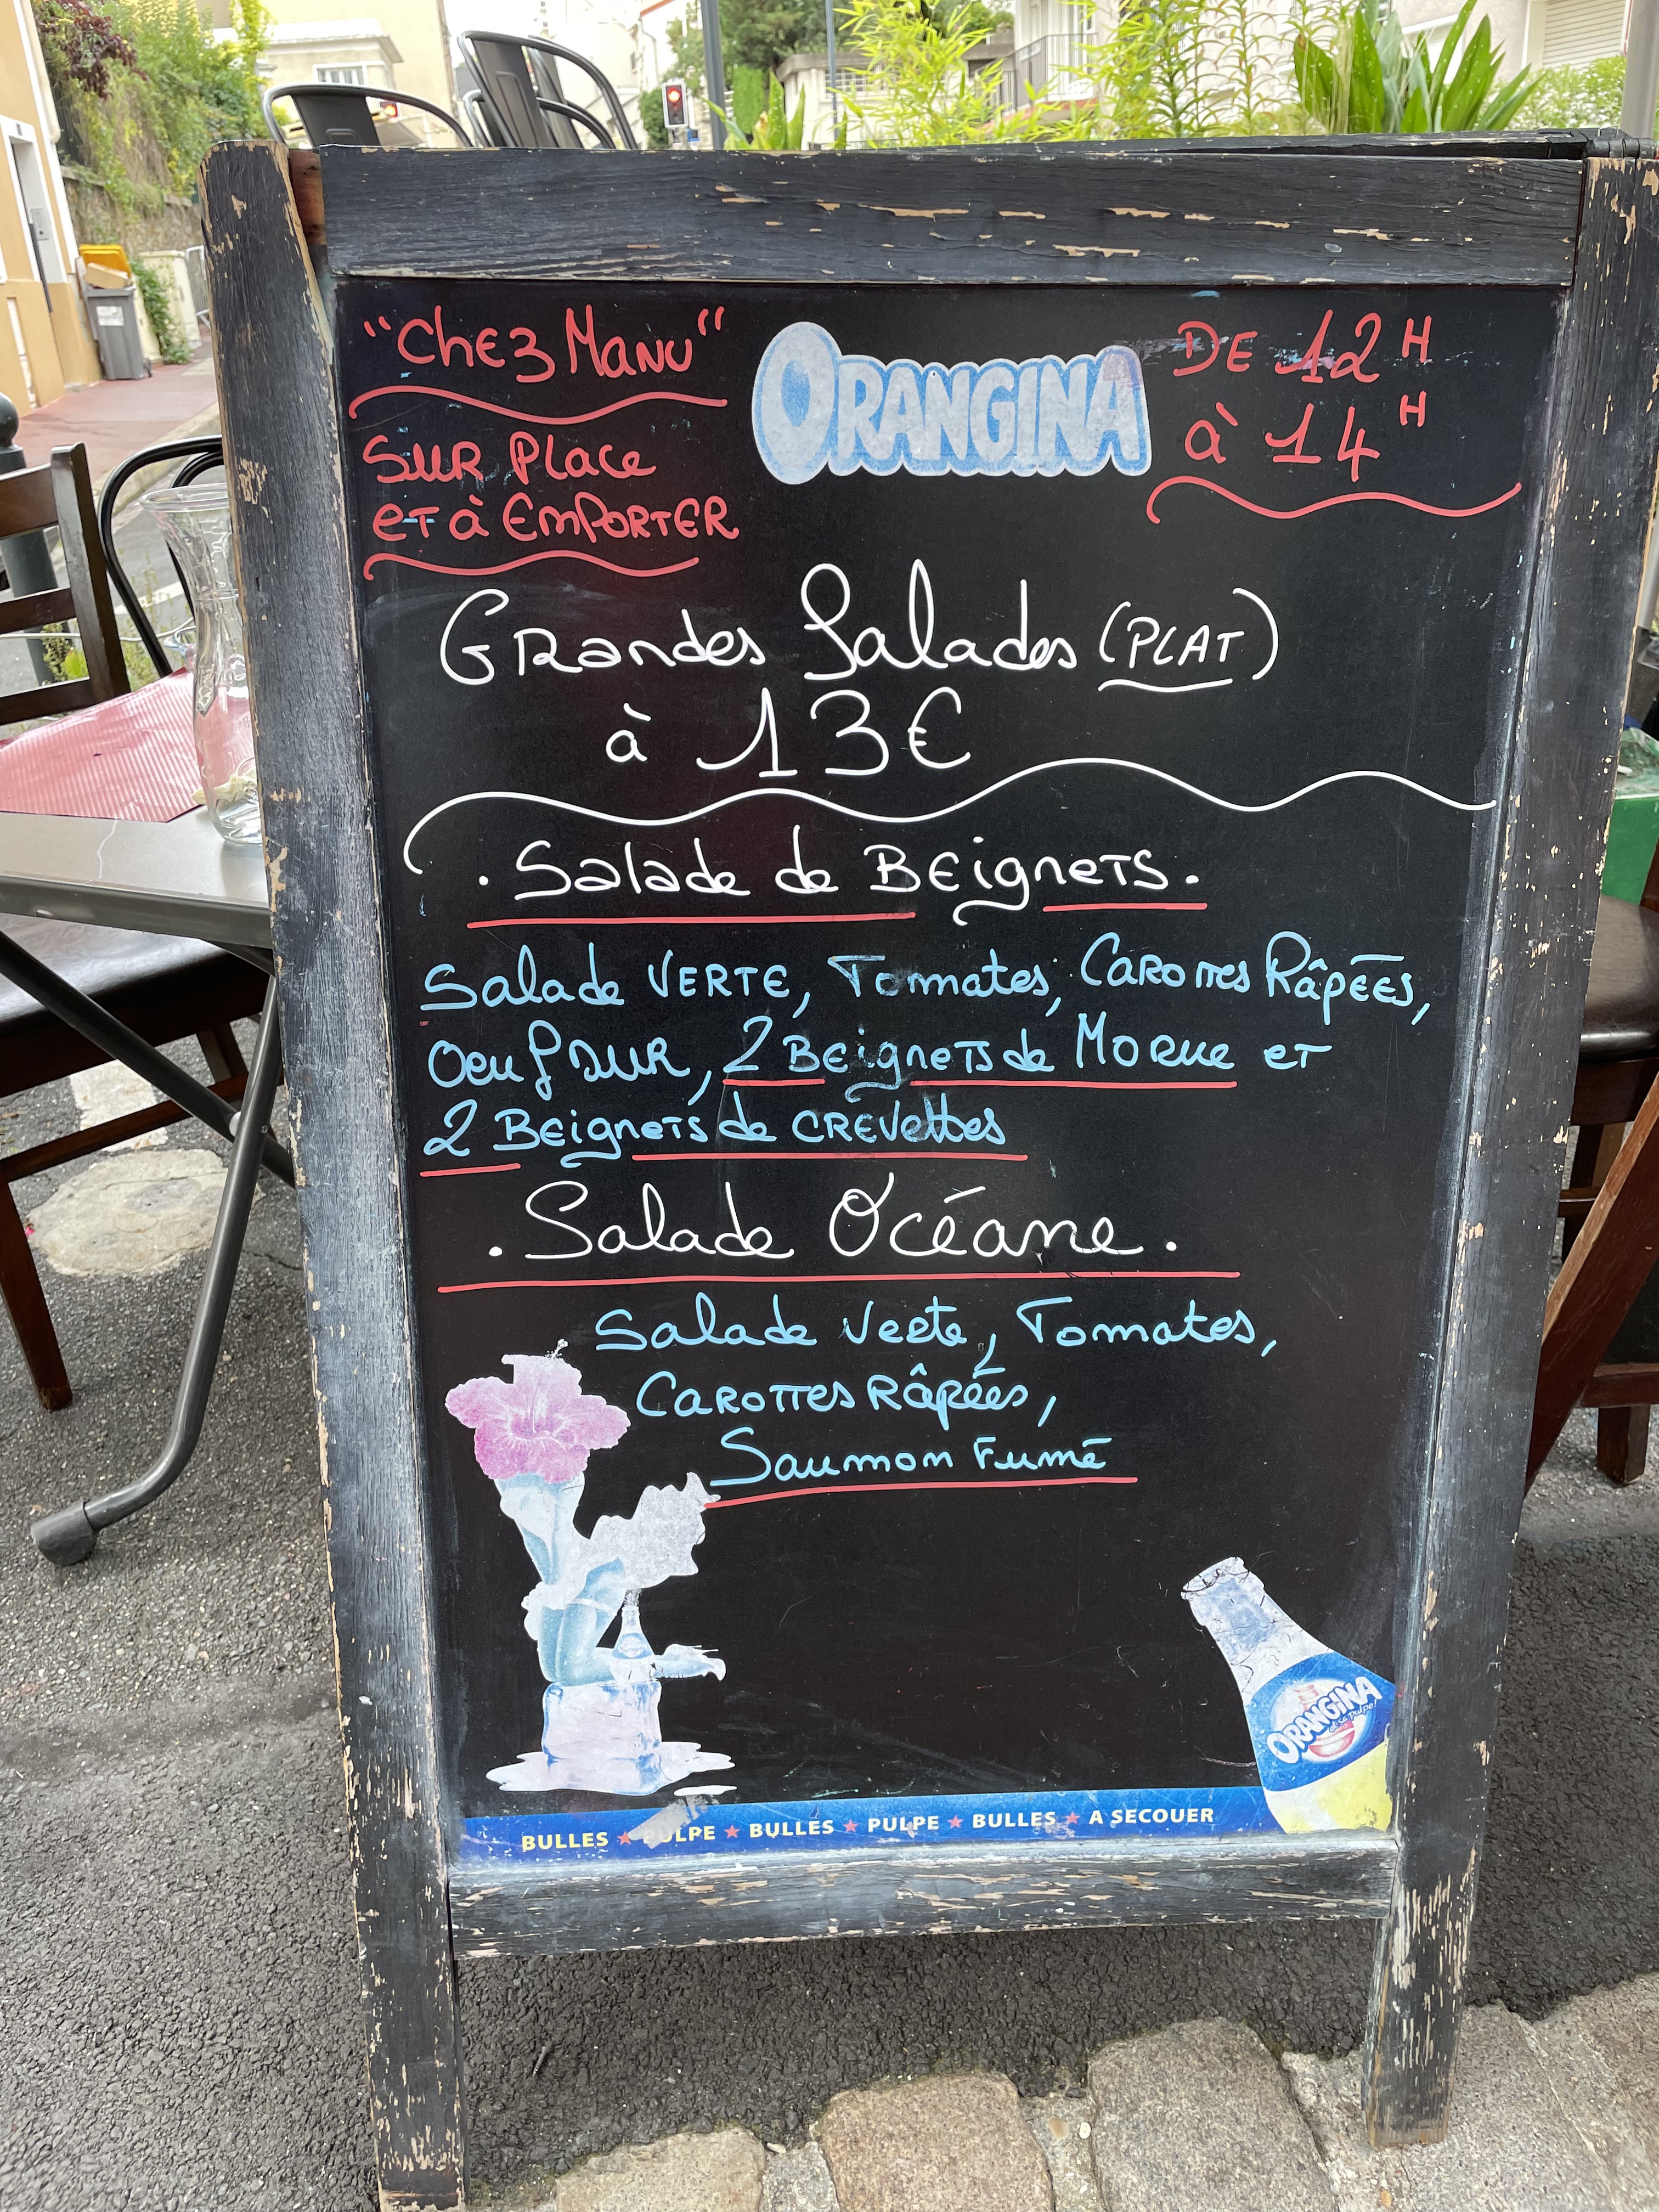 "Chez Manu"
Sur Place
et à Emporter
ORANGINA
DE 12H
à 14H
Grandes Salades (PLAT)
à 13€
. Salade de Beignets .
Salade VERTE, Tomates, Carottes Râpées,
Oeuf dur, 2 Beignets de Morue et
2 Beignets de crevettes
. Salade Océane .
Salade Verte, Tomates,
Carottes Râpées,
Saumon Fumé
ORANGINA
et sa pulpe
BULLES ★ PULPE ★ BULLES ★ PULPE ★ BULLES ★ A SECOUER